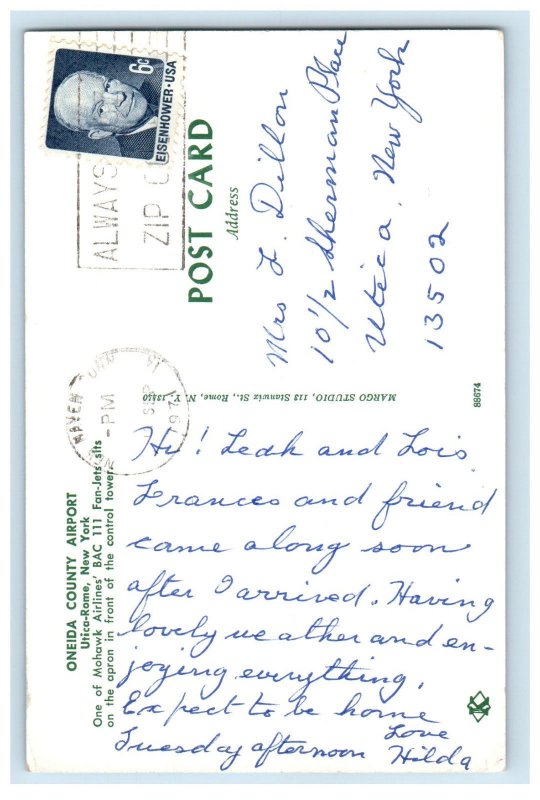 6c
EISENHOWER·USA
ALWAYS
ZIP CO
POST CARD
Address
Mrs L. Dillon
10 1/2 Sherman Place
Utica, New York
13502
PM
SEP
197
MARGO STUDIO, 113 Stanwix St., Rome, N.Y. 13440
88674
ONEIDA COUNTY AIRPORT
Utica-Rome, New York
One of Mohawk Airlines' BAC 111 Fan-Jets sits
on the apron in front of the control tower.
Hi! Leah and Lois
Frances and friend
came along soon
after I arrived. Having
lovely weather and en-
joying everything.
Expect to be home
Tuesday afternoon
Love
Hilda
K